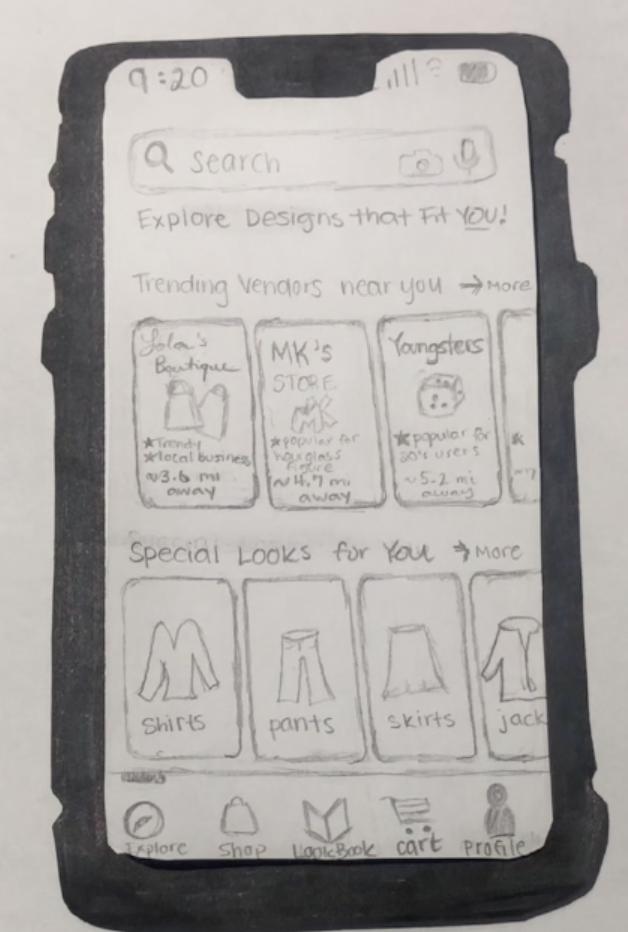 9:20
Search
Explore Designs that Fit YOU!
Trending Vendors near you → More
Lola's
Boutique
★Trendy
★local business
~3.6 mi
away
MK'S
STORE
MK
★popular for
hourglass
figure
~4.7 mi
away
Youngsters
★popular for
20's users
~5.2 mi
away
Special Looks for You → More
Shirts
pants
skirts
jack
Explore
Shop
LookBook
cart
Profile